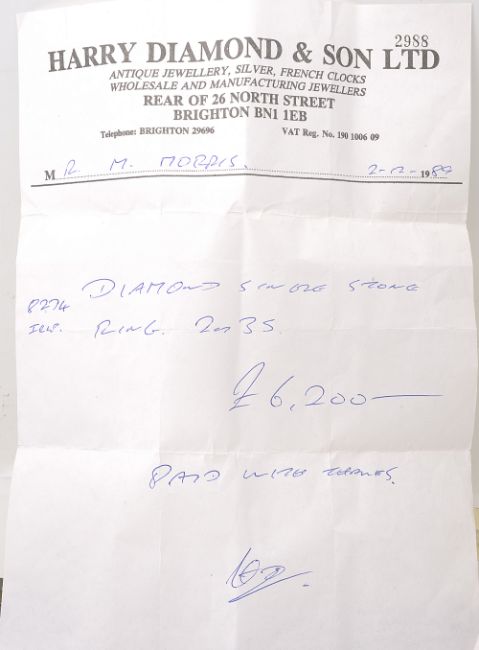 2988
HARRY DIAMOND & SON LTD
ANTIQUE JEWELLERY, SILVER, FRENCH CLOCKS
WHOLESALE AND MANUFACTURING JEWELLERS
REAR OF 26 NORTH STREET
BRIGHTON BN1 1EB
Telephone: BRIGHTON 29696 VAT Reg. No. 190 1006 09
MR. M. MORRIS. 2-12-1989
DIAMOND SINGLE STONE
8274 RING. 2 35.
£6,200—
PAID WITH THANKS.